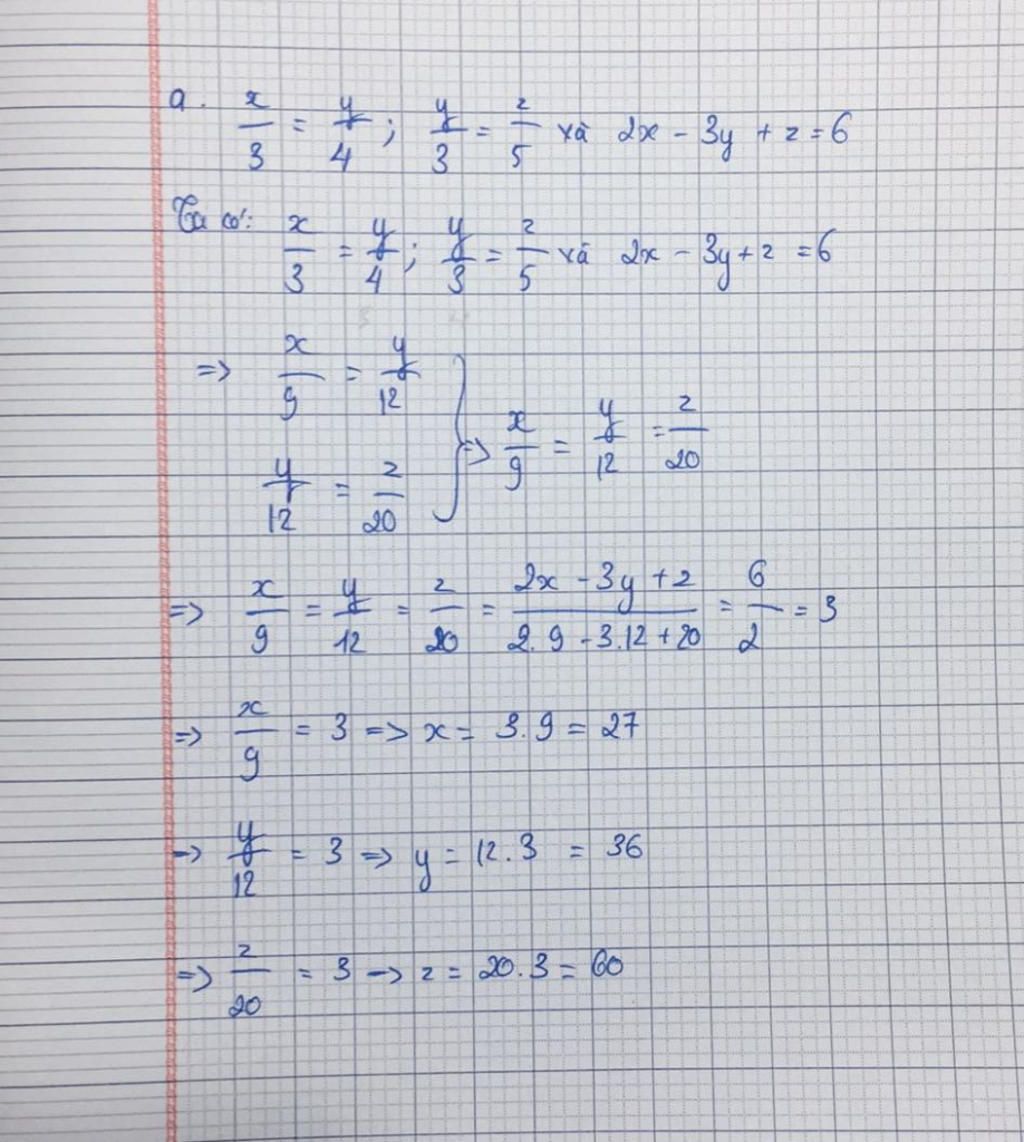 a. x/3 = y/4 ; y/3 = z/5 và 2x - 3y + z = 6
Ta có: x/3 = y/4 ; y/3 = z/5 và 2x - 3y + z = 6
=> x/9 = y/12
y/12 = z/20 } => x/9 = y/12 = z/20
=> x/9 = y/12 = z/20 = (2x - 3y + z)/(2.9 - 3.12 + 20) = 6/2 = 3
=> x/9 = 3 => x = 3.9 = 27
-> y/12 = 3 => y = 12.3 = 36
=> z/20 = 3 -> z = 20.3 = 60